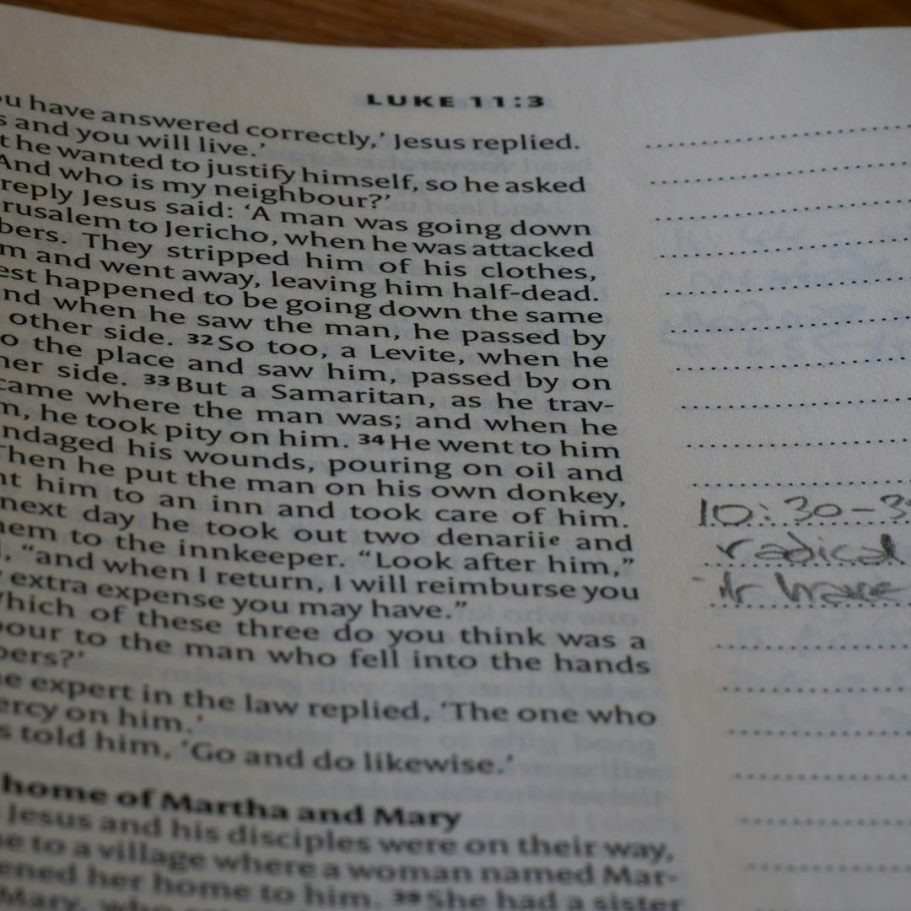 LUKE 11:3
ou have answered correctly,’ Jesus replied.
s and you will live.’
t he wanted to justify himself, so he asked
And who is my neighbour?’
reply Jesus said: ‘A man was going down
rusalem to Jericho, when he was attacked
bers. They stripped him of his clothes,
m and went away, leaving him half-dead.
est happened to be going down the same
nd when he saw the man, he passed by
other side. 32 So too, a Levite, when he
o the place and saw him, passed by on
her side. 33 But a Samaritan, as he trav-
came where the man was; and when he
m, he took pity on him. 34 He went to him
ndaged his wounds, pouring on oil and
Then he put the man on his own donkey,
ht him to an inn and took care of him.
next day he took out two denarii e and
hem to the innkeeper. “Look after him,”
, “and when I return, I will reimburse you
extra expense you may have.”
Which of these three do you think was a
bour to the man who fell into the hands
bers?’
e expert in the law replied, ‘The one who
ercy on him.’
s told him, ‘Go and do likewise.’
home of Martha and Mary
Jesus and his disciples were on their way,
e to a village where a woman named Mar-
ened her home to him. 39 She had a sister
Mary, who
10:30-3
radical